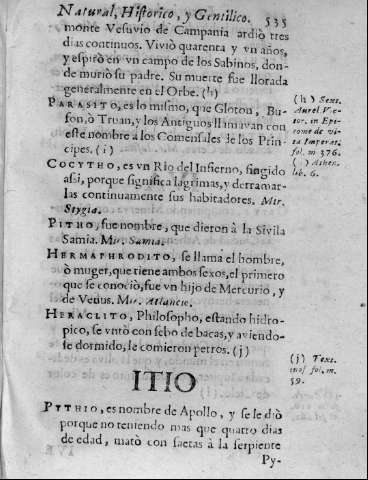 Natural, Historico, y Gentilico. 535
monte Vesuvio de Campania ardiò tres
dias continuos. Viviò quarenta y vn años,
y espirò en vn campo de los Sabinos, don-
de muriò su padre. Su muerte fue llorada
generalmente en el Orbe. (h)
(h) Sext.
Aurel Vic-
tor. in Epi-
tome de vi-
ta Imperat.
fol. m 376.
PARASITO, es lo mismo, que Gloton, Bu-
fon, ò Truan, y los Antiguos llamavan con
este nombre a los Comensales de los Prin-
cipes. (i)
(i) Athen.
lib. 6.
COCYTHO, es vn Rio del Infierno, fingido
assi, porque significa lagrimas, y derramar-
las continuamente sus habitadores. Mir.
Stygia.
PITHO, fue nombre, que dieron à la Sivila
Samia. Mir. Samia.
HERMAPHRODITO, se llama el hombre,
ò muger, que tiene ambos sexos, el primero
que se conociò, fue vn hijo de Mercurio, y
de Venus. Mir. Atlancio.
HERACLITO, Philosopho, estando hidro-
pico, se vntò con sebo de bacas, y aviendo-
se dormido, le comieron perros. (j)
(j) Text.
fol. m.
59.
ITIO
PYTHIO, es nombre de Apollo, y se le diò
porque no teniendo mas que quatro dias
de edad, matò con saetas à la serpiente
Py-